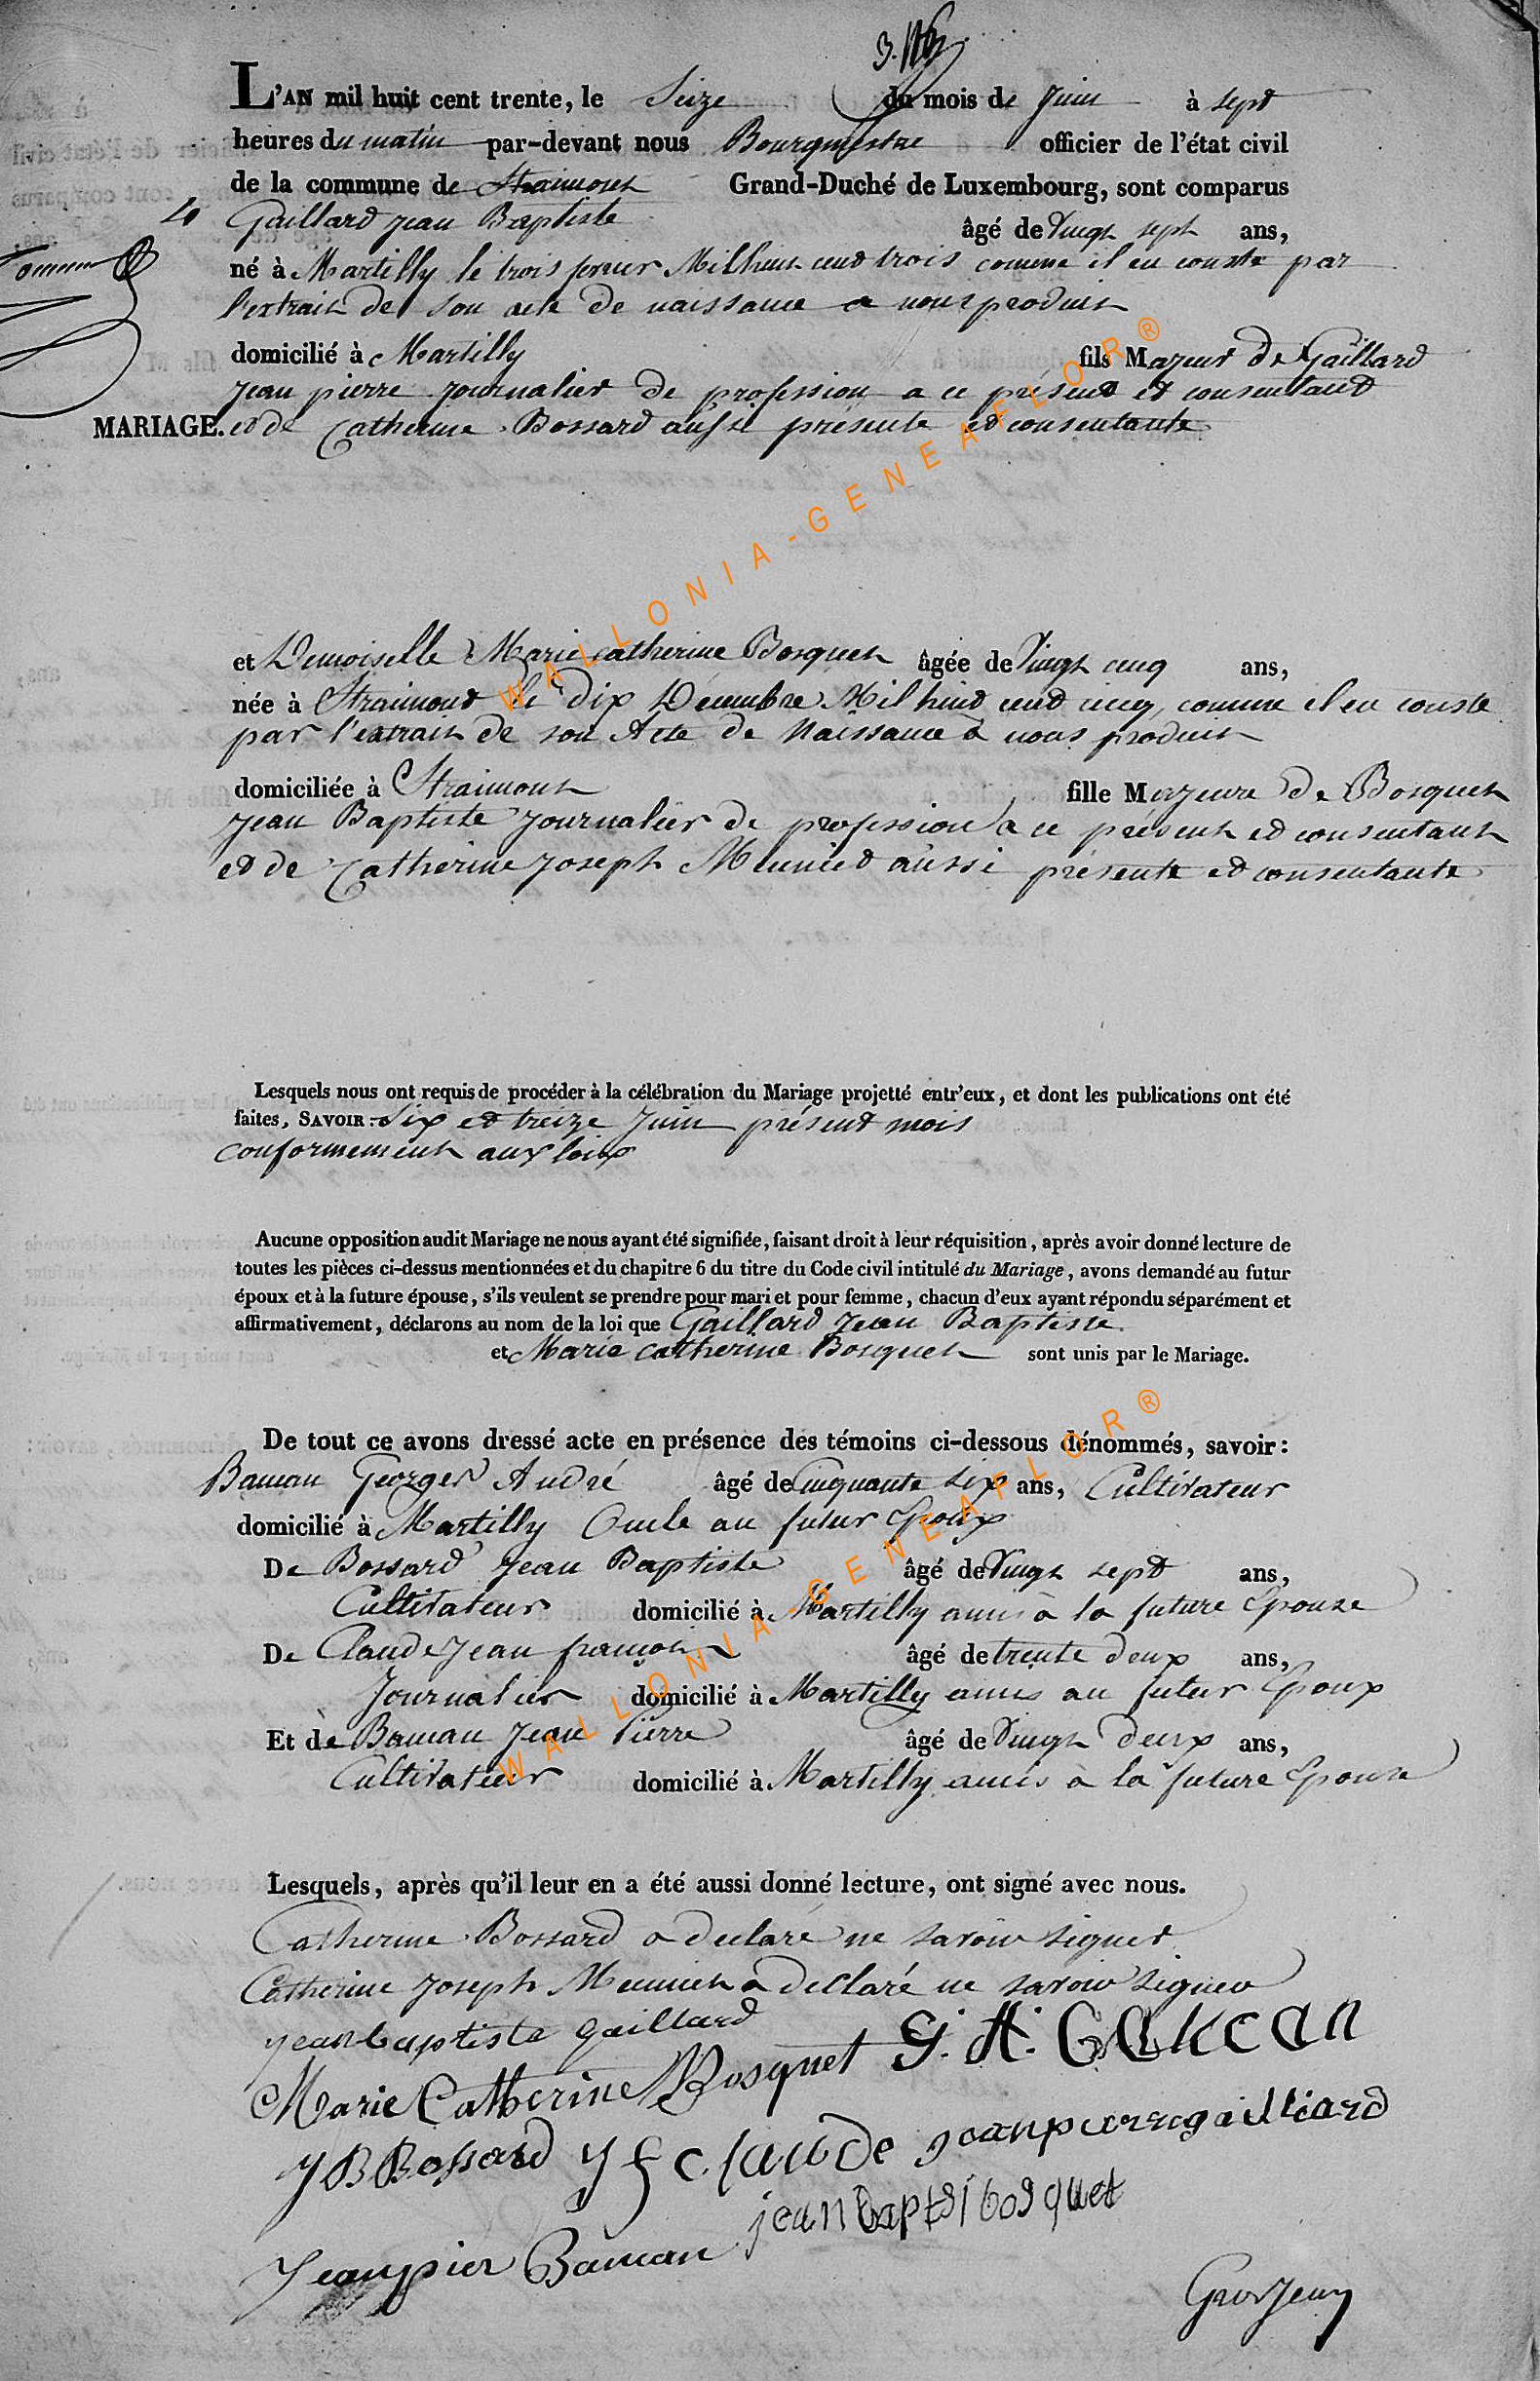 L'AN mil huit cent trente, le Seize du mois de Juin à sept
heures du matin par-devant nous Bourgmestre officier de l'état civil
de la commune de Straimont Grand-Duché de Luxembourg, sont comparus
Gaillard Jean Baptiste âgé de Vingt sept ans,
né à Martilly le trois Mil huit cent trois comme il en conste par
l'extrait de son acte de naissance a nous produit
domicilié à Martilly fils Majeur de Gaillard
Jean pierre Journalier de profession a ce présent et consentant
MARIAGE. et de Catherine Bossard aussi présente et consentante
et Demoiselle Marie catherine Bosquet âgée de Vingt cinq ans,
née à Straimont le dix Décembre Mil huit cent cinq, comme il en conste
par l'extrait de son Acte de Naissance à nous produit
domiciliée à Straimont fille Majeure de Bosquet
Jean Baptiste Journalier de profession a ce présent et consentant
et de Catherine Joseph Meunier aussi présente et consentante
Lesquels nous ont requis de procéder à la célébration du Mariage projetté entr'eux, et dont les publications ont été
faites, SAVOIR: Six et treize Juin présent mois
conformement aux loix
Aucune opposition audit Mariage ne nous ayant été signifiée, faisant droit à leur réquisition, après avoir donné lecture de
toutes les pièces ci-dessus mentionnées et du chapitre 6 du titre du Code civil intitulé du Mariage, avons demandé au futur
époux et à la future épouse, s'ils veulent se prendre pour mari et pour femme, chacun d'eux ayant répondu séparément et
affirmativement, déclarons au nom de la loi que Gaillard Jean Baptiste
et Marie catherine Bosquet sont unis par le Mariage.
De tout ce avons dressé acte en présence des témoins ci-dessous dénommés, savoir:
Bauuau Georges André âgé de Cinquante Six ans, Cultivateur
domicilié à Martilly Oncle au futur Epoux
De Bossard Jean Baptiste âgé de Vingt sept ans,
Cultivateur domicilié à Martilly amis à la future Epouse
De Claude Jean françois âgé de trente deux ans,
Journalier domicilié à Martilly amis au futur Epoux
Et de Bauuau Jean Pierre âgé de Vingt deux ans,
Cultivateur domicilié à Martilly amis à la future Epouse
Lesquels, après qu'il leur en a été aussi donné lecture, ont signé avec nous.
Catherine Bossard a declaré ne savoir signer
Catherine Joseph Meunier a declaré ne savoir signer
jean baptiste gaillard
Marie Catherine Bosquet G. A.
J B Bossard J f claude jean pierre gailliard
jean baptsi bosquet
Jean pier Bauuau
Grosjean
WALLONIA-GENEAFLOR®
WALLONIA-GENEAFLOR®